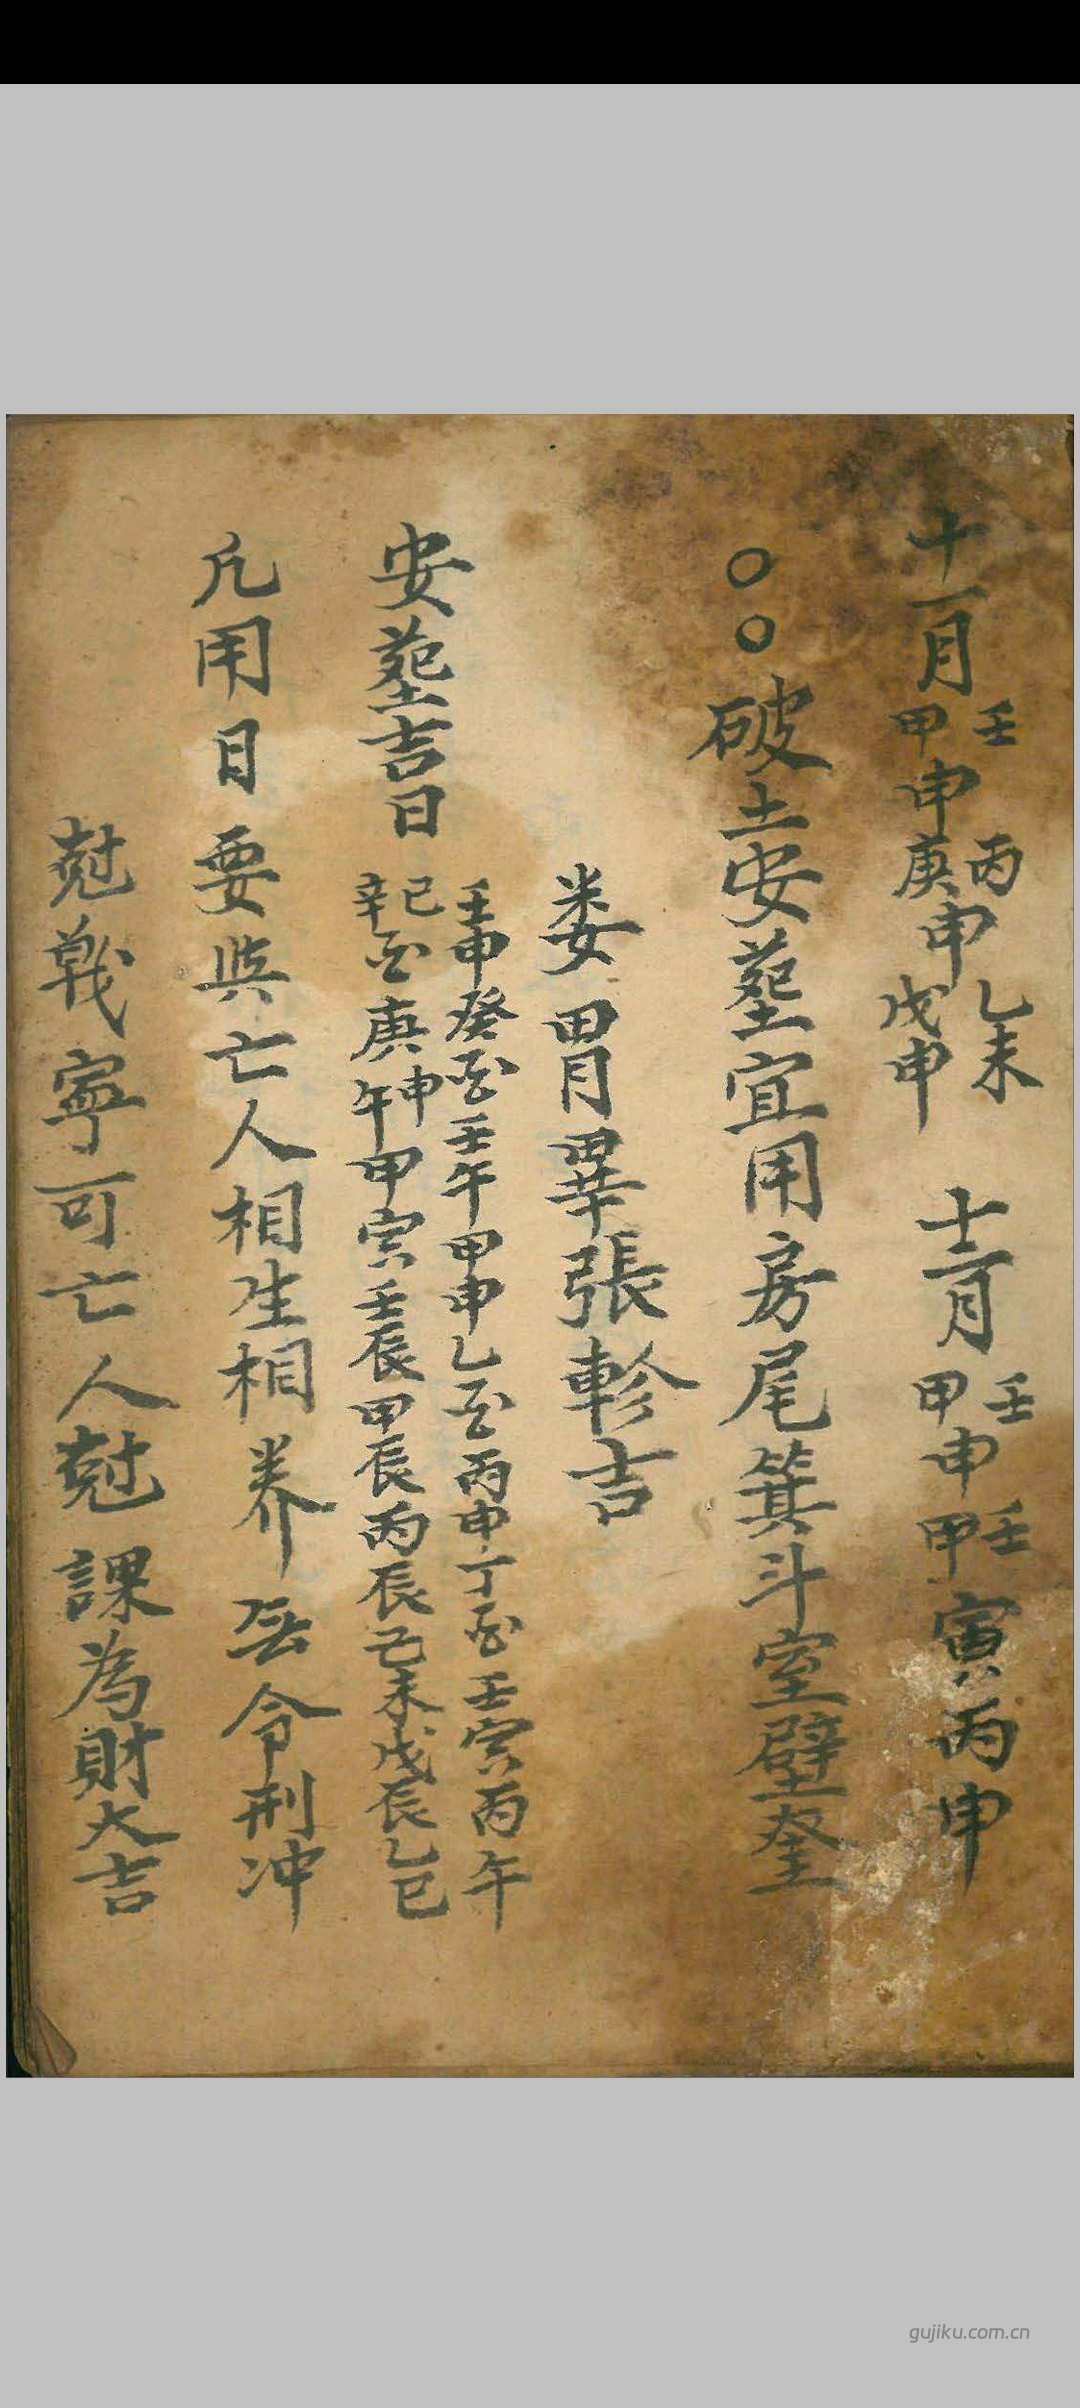 十一月 壬甲申 丙庚申 乙未 戊申 十二月 壬甲申 壬甲寅 丙申
○○破土安葬宜用房尾箕斗室壁奎
娄胃畢張軫吉
安葬吉日 壬申癸酉壬午甲申乙酉丙申丁酉壬寅丙午
己辛酉庚申午甲寅壬辰甲辰丙辰己未戊辰乙巳
凡用日要与亡人相生相养 令刑冲
尅戰寧可亡人尅課為財大吉
gujiku.com.cn